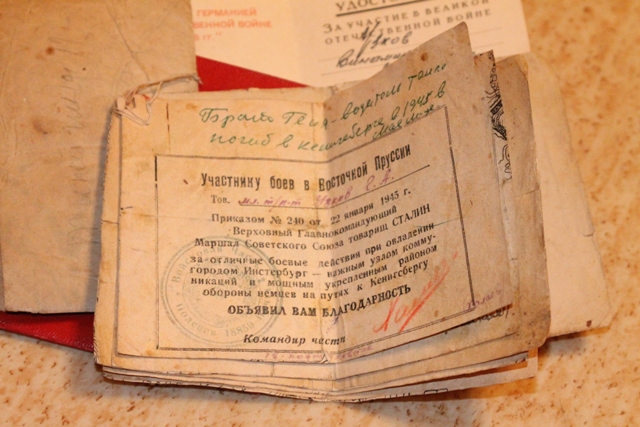 ГЕРМАНИЕЙ
ВЕННОЙ ВОЙНЕ
гг."
УДОСТО
ЗА УЧАСТИЕ В ВЕЛИКОЙ
ОТЕЧЕСТВЕННОЙ ВОЙНЕ
водитель танка
погиб в Кенигсберге в 1945 г
Участнику боев в Восточной Пруссии
Тов.
Приказом № 240 от 22 января 1945 г.
Верховный Главнокомандующий
Маршал Советского Союза товарищ СТАЛИН
за отличные боевые действия при овладении
городом Инстербург — важным узлом комму-
никаций и мощным укрепленным районом
обороны немцев на путях к Кенигсбергу
ОБЪЯВИЛ ВАМ БЛАГОДАРНОСТЬ
Командир части